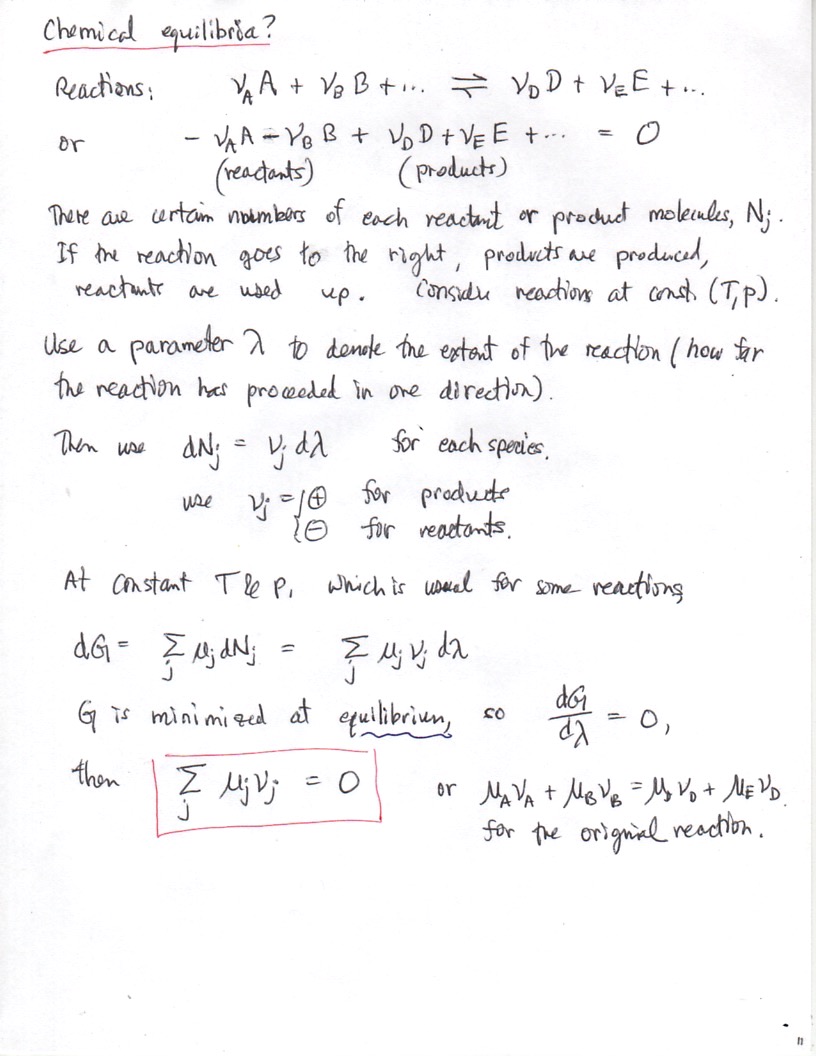 Chemical equilibria?
Reactions: ν_A A + ν_B B + ... ⇌ ν_D D + ν_E E + ...
or - ν_A A - ν_B B + ν_D D + ν_E E + ... = 0
(reactants) (products)
There are certain numbers of each reactant or product molecules, N_j.
If the reaction goes to the right, products are produced,
reactants are used up. Consider reactions at const. (T, p).
Use a parameter λ to denote the extent of the reaction (how far
the reaction has proceeded in one direction).
Then use dN_j = ν_j dλ for each species.
use ν_j = { ⊕ for products
⊖ for reactants.
At constant T & p, which is usual for some reactions,
dG = Σ_j μ_j dN_j = Σ_j μ_j ν_j dλ
G is minimized at equilibrium, so dG/dλ = 0,
then Σ_j μ_j ν_j = 0 or μ_A ν_A + μ_B ν_B = μ_D ν_D + μ_E ν_D.
for the orignial reaction.
11